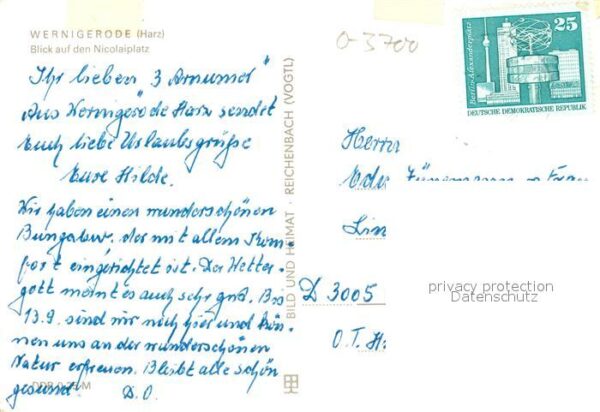 WERNIGERODE (Harz)
Blick auf den Nicolaiplatz
Ihr lieben 3 Arnumer"
Aus Wernigerode Harz sendet
Euch liebe Urlaubsgrüße
Eure Hilde.
Wir haben einen wunderschönen
Bungalow, der mit allem Kom-
fort eingerichtet ist. Der Wetter-
gott meint es auch sehr gut. Bis
13.9. sind wir noch hier und kön-
nen uns an der wunderschönen
Natur erfreuen. Bleibt alle schön
gesund. D.O.
DDR 0,25 M
BILD UND HEIMAT · REICHENBACH (VOGTL)
0-3700
25
Berlin-Alexanderplatz
DEUTSCHE DEMOKRATISCHE REPUBLIK
Herrn
D 3005
O.T. H
privacy protection
Datenschutz